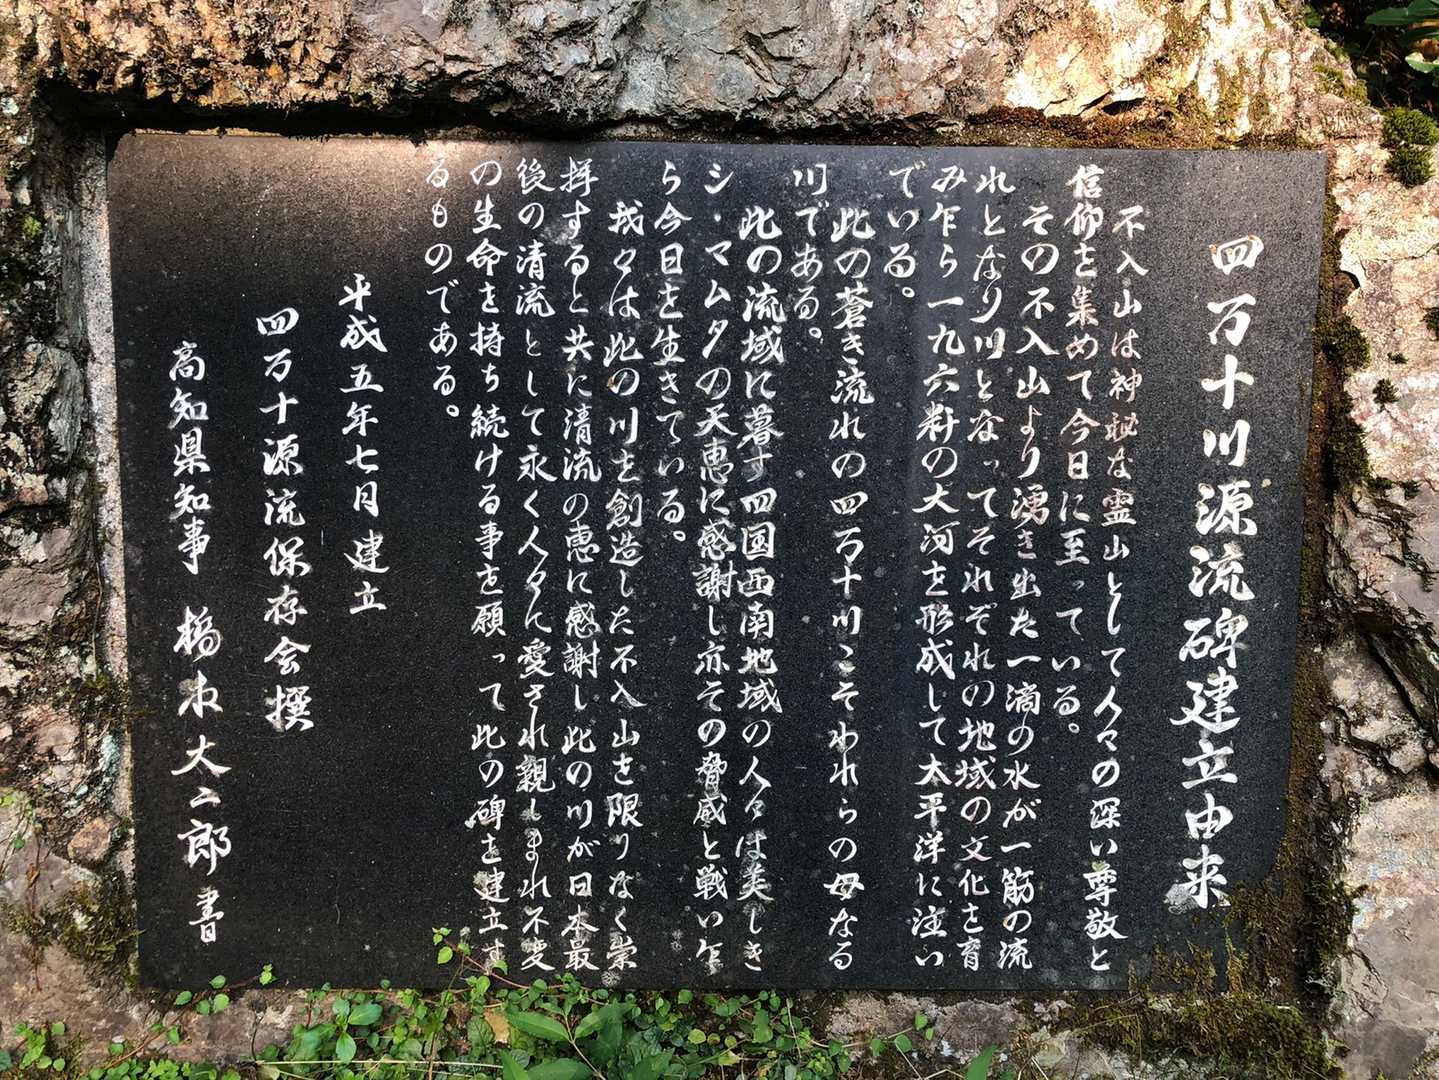 四万十川源流碑建立由来
不入山は神秘な霊山として人々の深い尊敬と
信仰を集めて今日に至っている。
その不入山より湧き出た一滴の水が一筋の流
れとなり川となってそれぞれの地域の文化を育
み乍ら一九六粁の大河を形成して太平洋に注い
でいる。
此の蒼き流れの四万十川こそわれらの母なる
川である。
此の流域に暮す四国西南地域の人々は美しき
シ・マムタの天恵に感謝し亦その脅威と戦い乍
ら今日を生きている。
我々は此の川を創造した不入山を限りなく崇
拝すると共に清流の恵に感謝し此の川が日本最
後の清流として永く人々に愛され親しまれ不変
の生命を持ち続ける事を願って此の碑を建立す
るものである。
平成五年七月建立
四万十源流保存会撰
高知県知事 橋本大二郎書